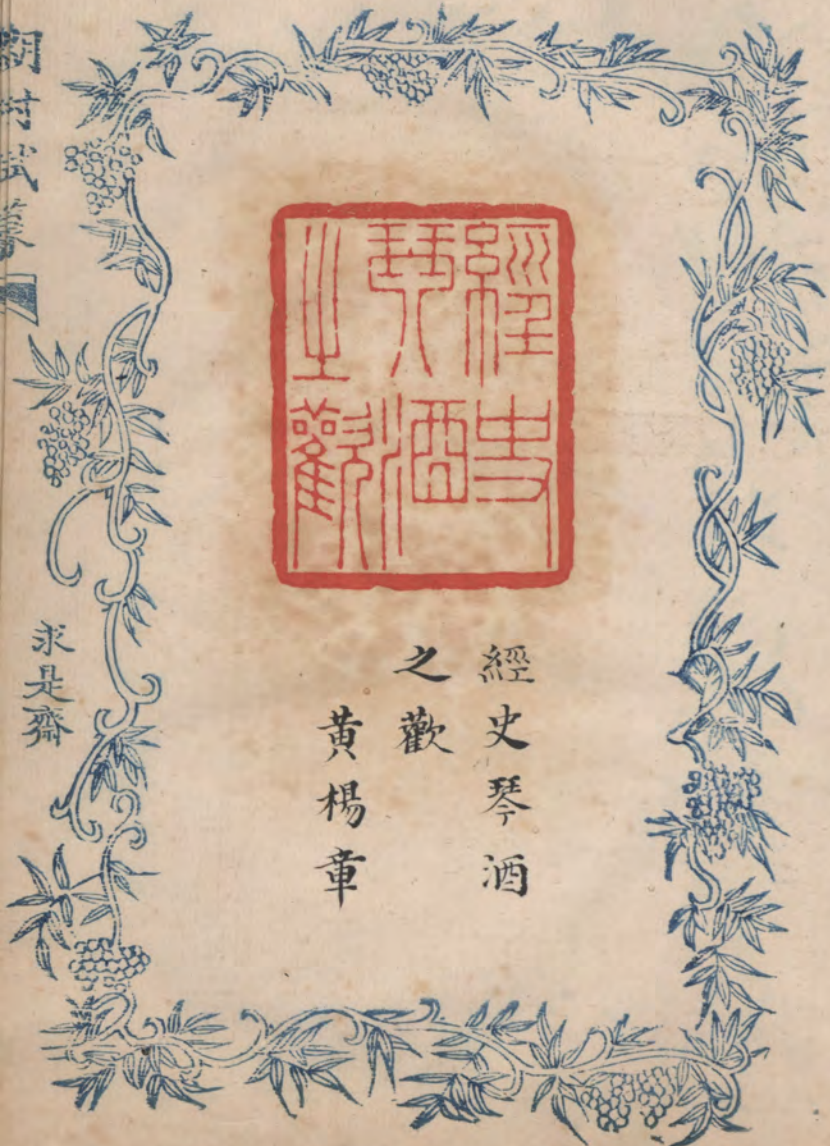 經史
琴酒
之歡
經史琴酒
之歡
黃楊章
求是齋